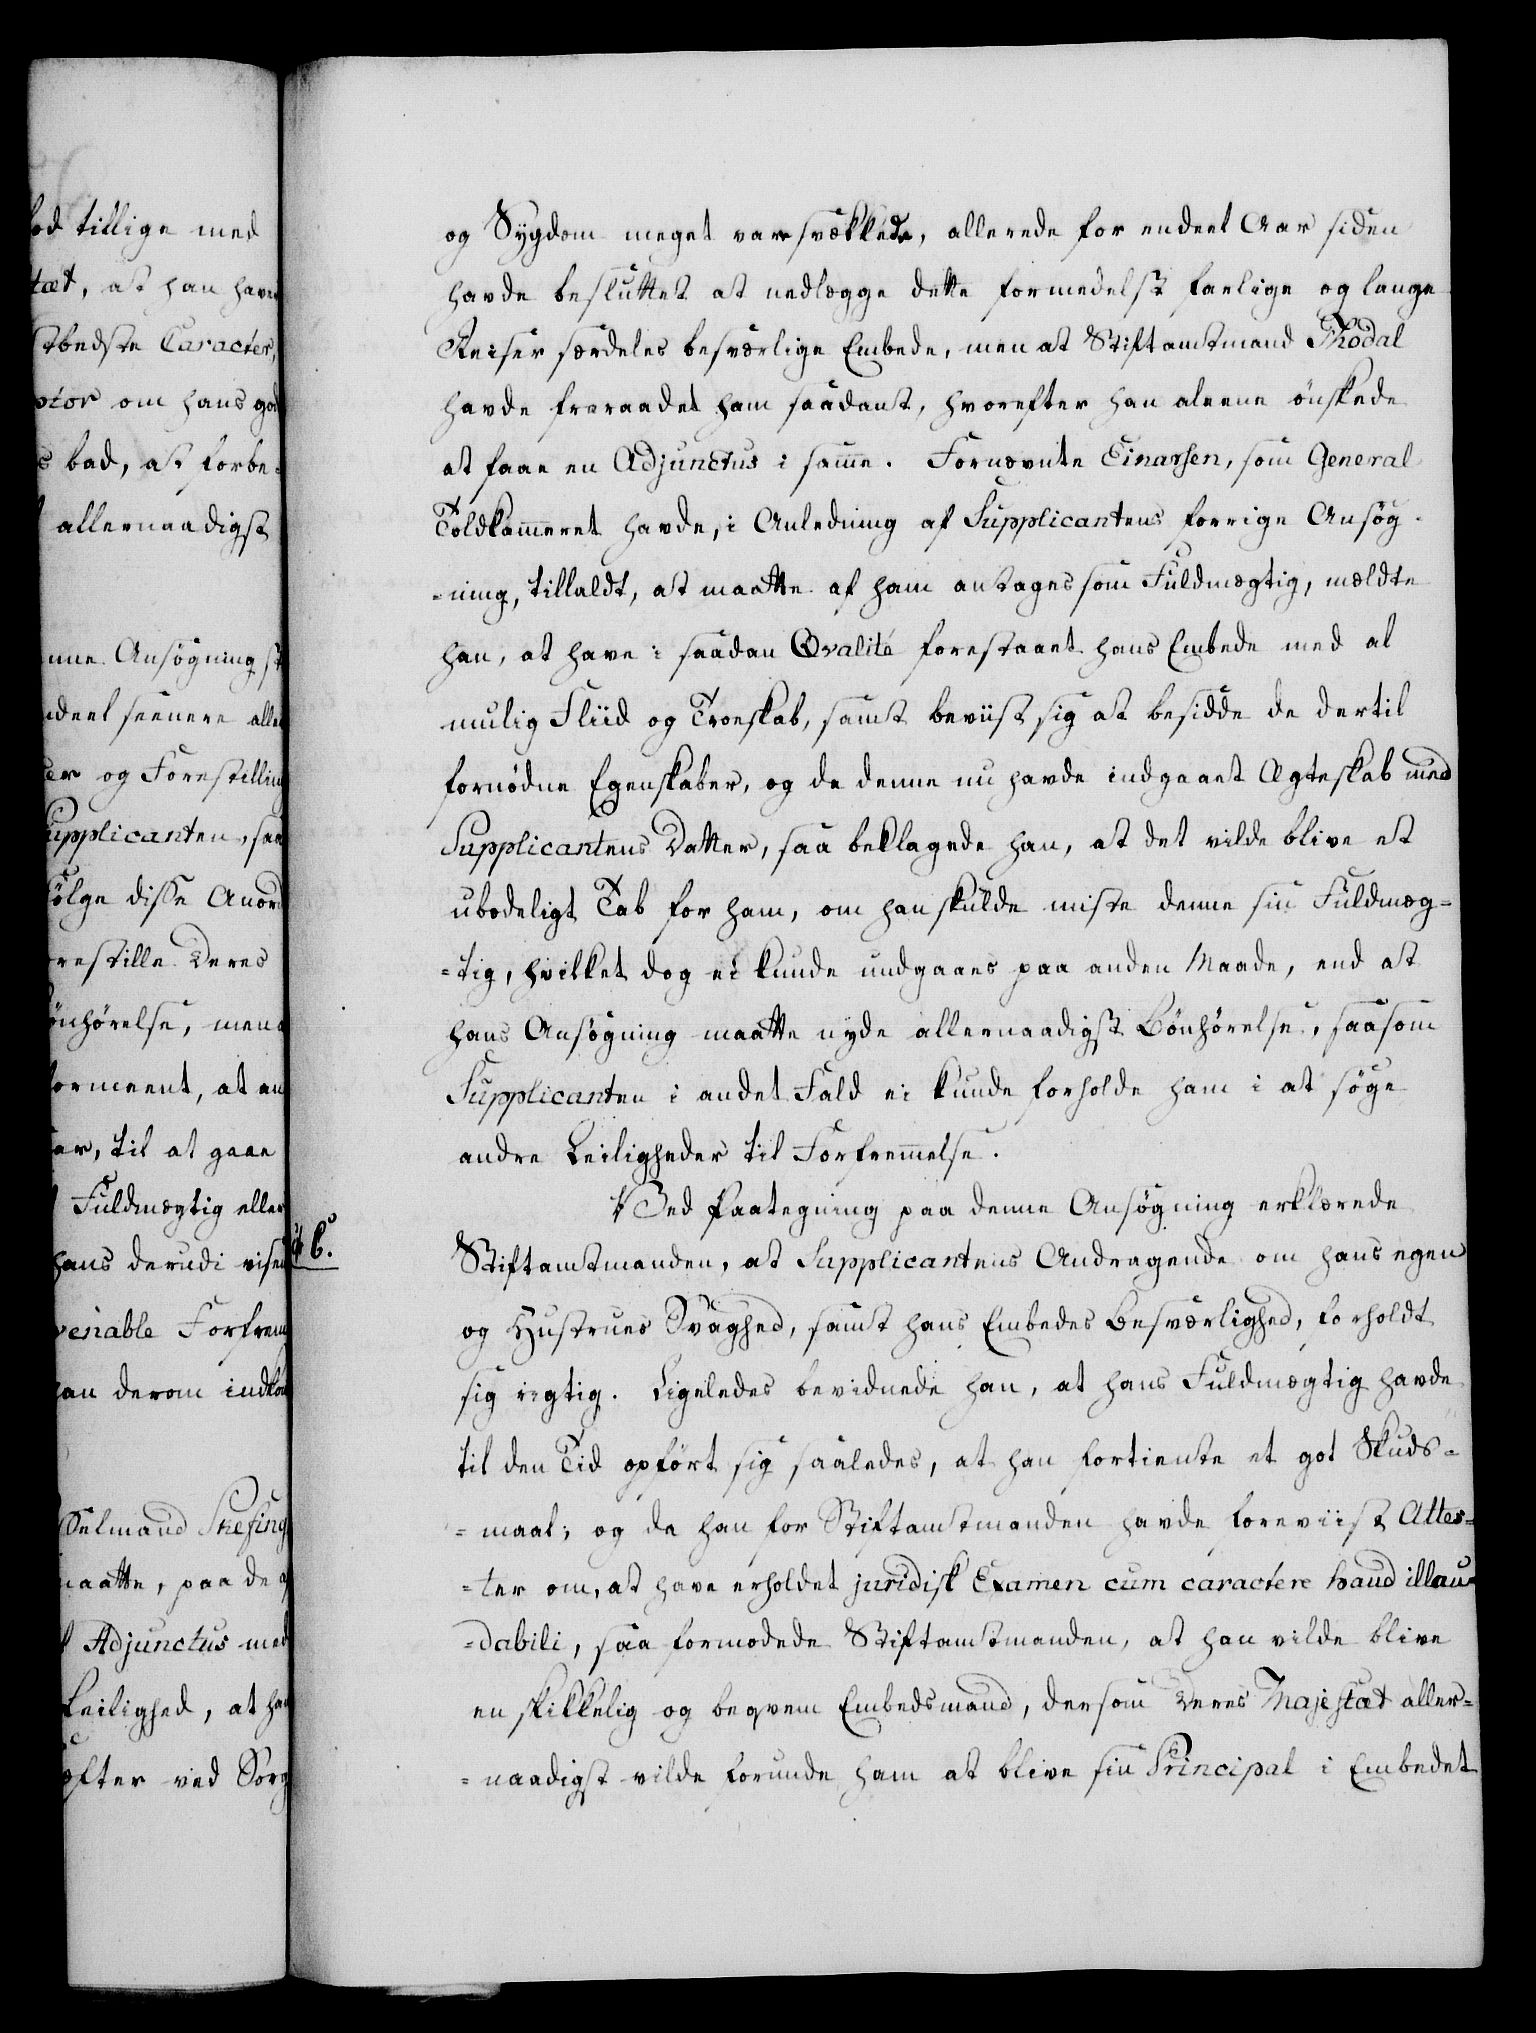 og Sygdom meget var svækkede, allerede for endeel Aar siden
havde besluttet at nedlægge dette formedelst farlige og lange
Reiser særdeles besværlige Embede, men at Stiftamtmand Thodal
havde fraraadet ham saadant, hvorefter han aleene ønskede
at faae en Adjunctus i samme. Fornævnte Einarsen, som General
Toldkammeret havde, i Anledning af Supplicantens forrige Ansøg-
-ning, tilladt, at maatte af ham antages som Fuldmægtig, mældte
han, at have i saadan Qvalité forestaaet hans Embede med al
mulig Fliid og Troeskab, samt beviist sig at besidde de dertil
fornødne Egenskaber, og da denne nu havde indgaaet Ægteskab med
Supplicantens Datter, saa beklagede han, at det vilde blive et
ubodeligt Tab for ham, om han skulde miste denne sin Fuldmæg=
=tig, hvilket dog ei kunde undgaaes paa anden Maade, end at
hans Ansøgning maatte nyde allernaadigst Bønhørelse, saasom
Supplicanten i andet Fald ei kunde forholde ham i at søge
andre Leiligheder til Forfremmelse.
Ved Paategning paa denne Ansøgning erklærede
Stiftamtmanden, at Supplicantens Andragende om hans egen
og Hustrues Svaghed, samt hans Embedes Besværlighed, forholdt
sig rigtig. Ligeledes bevidnede han, at hans Fuldmægtig havde
til den Tid opført sig saaledes, at han fortiente et got Skuds=
=maal; og da han for Stiftamtmanden havde foreviist Attes=
=ter om, at have erholdet juridisk Examen cum caractere haud illau=
=dabili, saa formodede Stiftamtmanden, at han vilde blive
en skikkelig og beqvem Embedsmand, dersom Deres Majestæt aller=
=naadigst vilde forunde ham at blive sin Principal i Embedet
b.
tillige med
at han have
Caracter,
om hans god
bad, at forbe-
allernaadigst
Ansøgning
seenere
og Forestilling
Supplicanten, saa
disse Anord
Deres
Bønhørelse, men
at en
til at gaae
Fuldmægtig eller
hans derudi
Forfrem
derom
maatte, paa
Adjunctus med
Leilighed, at
efter ved Sorg